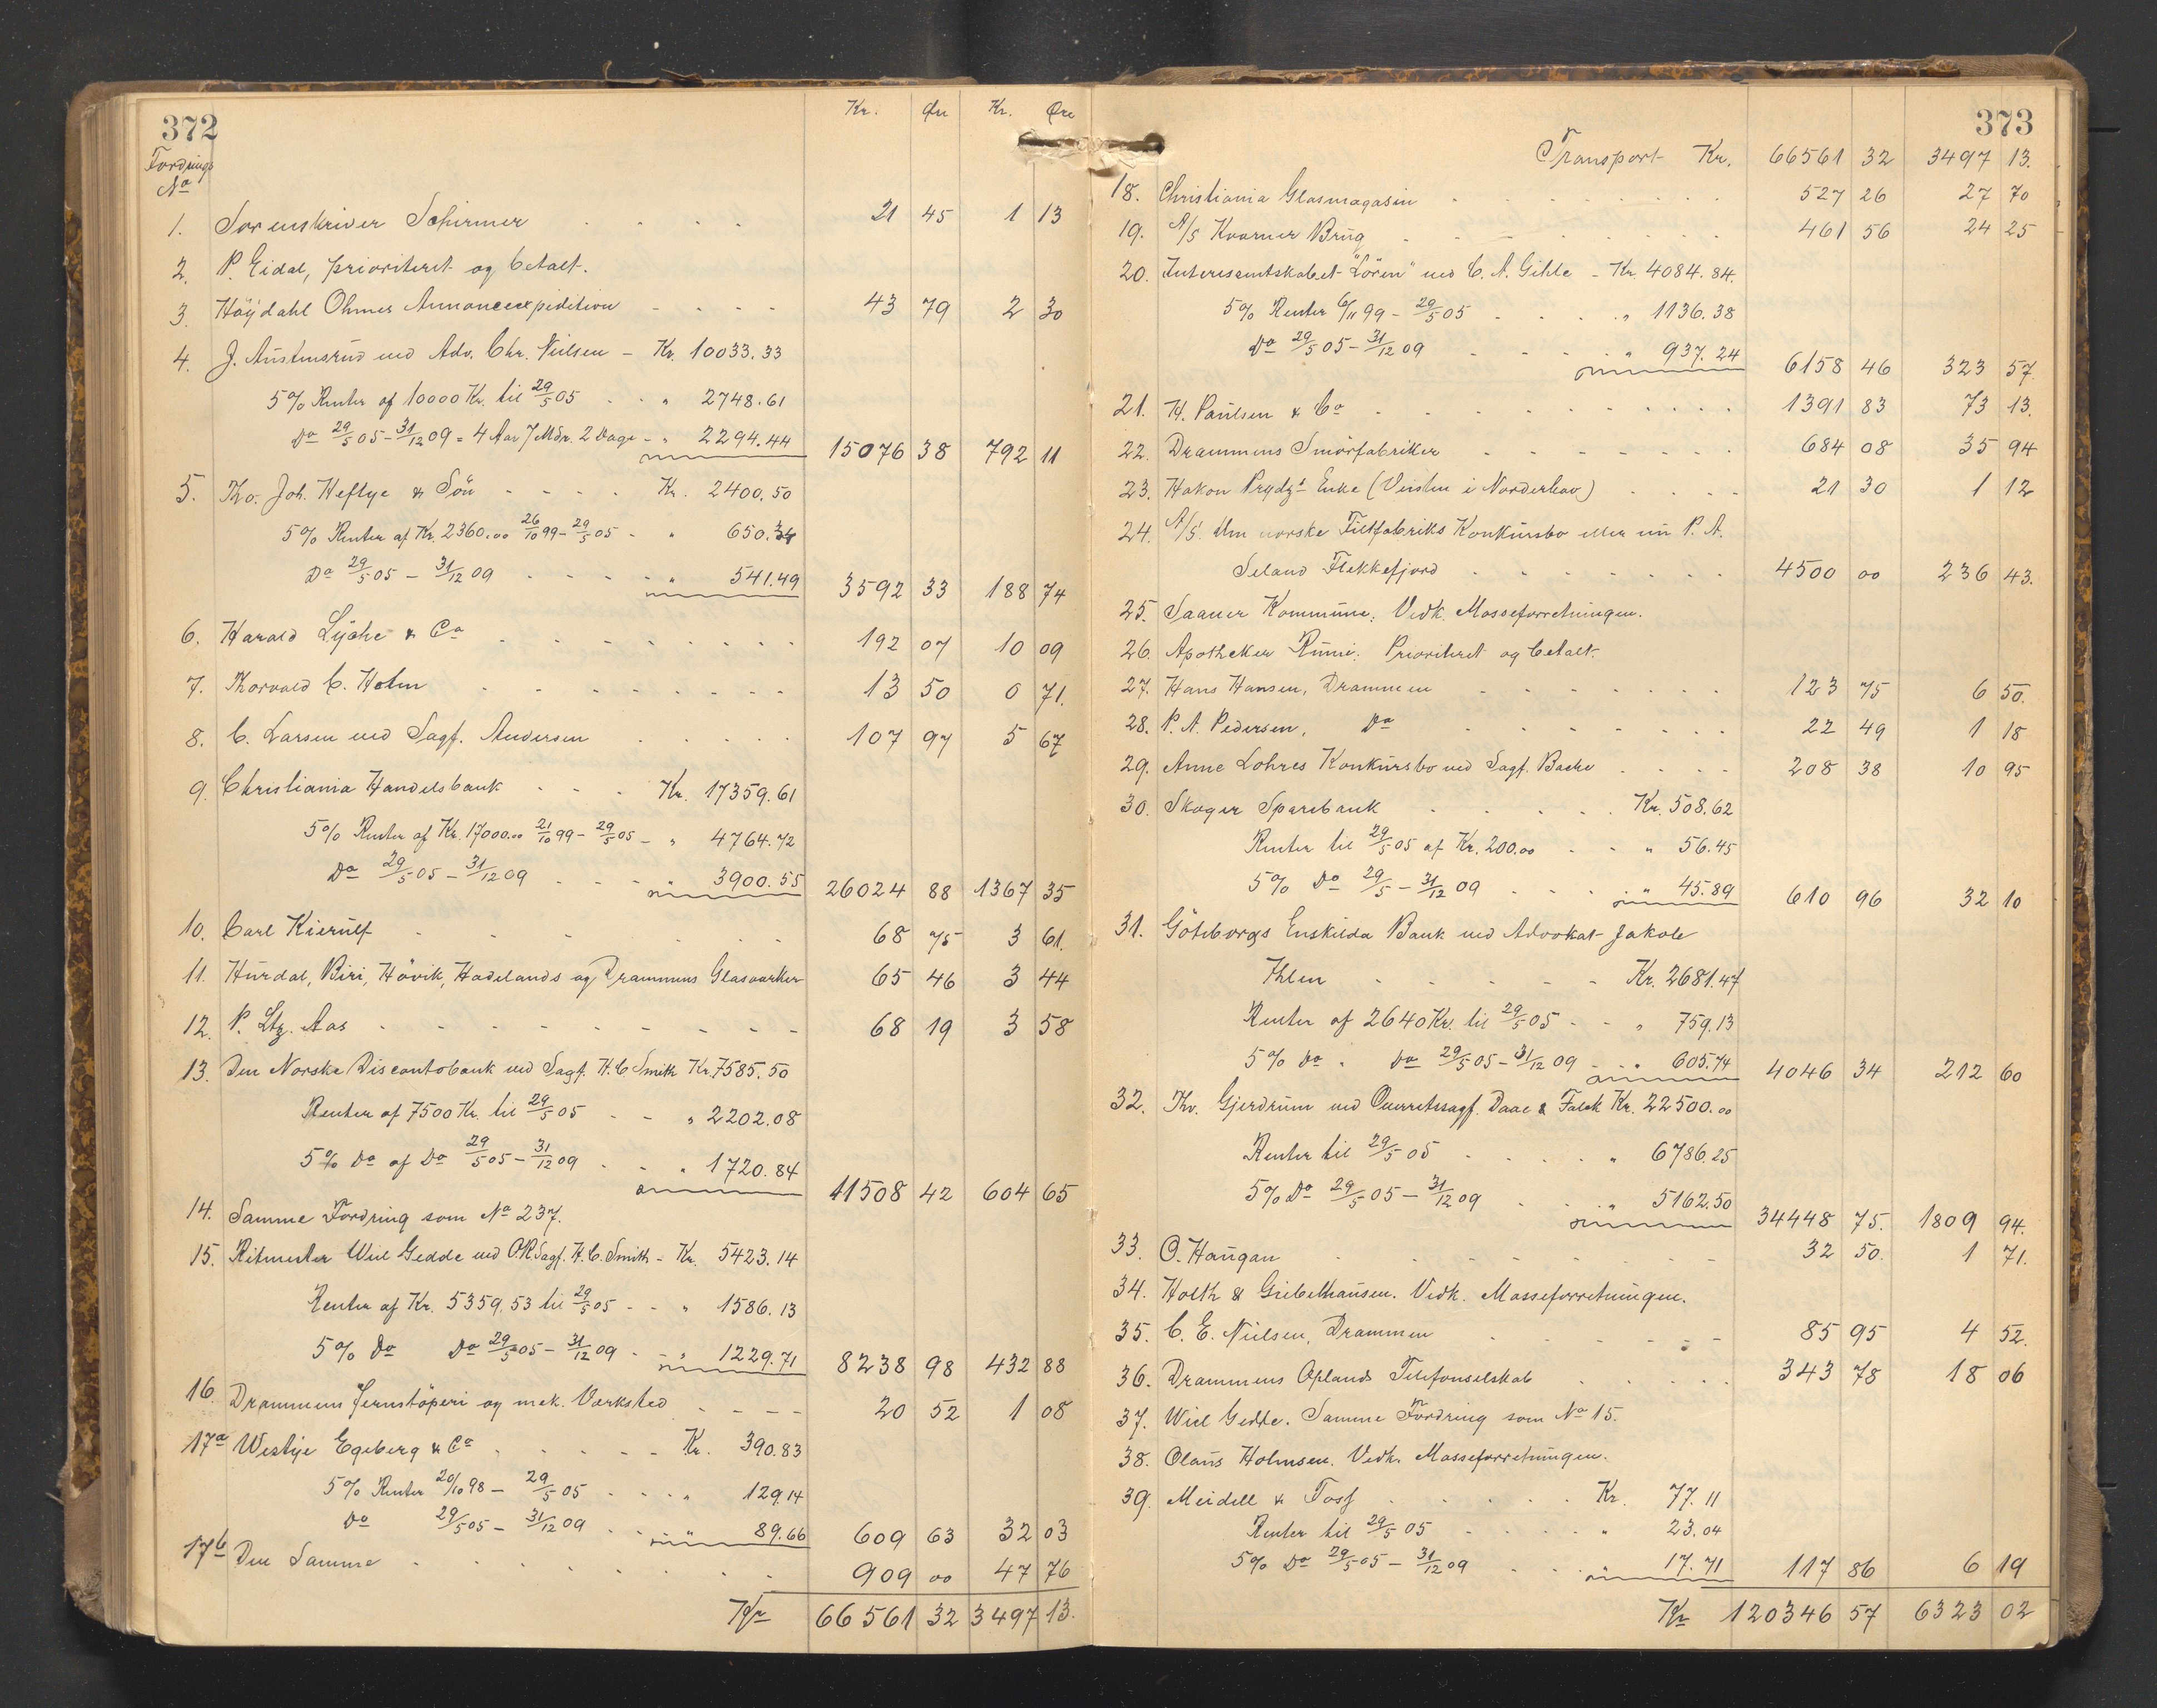 372
Kr. Øre Kr. Øre
Fordrings
No
1. Sorenskriver Schirmer 21 45 1 13
2. P. Eidal, prioriteret og betalt.
3. Höydahl Ohmes Annonceexpedition 43 79 2 30
4. J. Austensrud ved Adv. Chr. Nielsen - Kr. 10033.33
5% Renter af 10000 Kr. til 29/5 05 " 2748.61
Do 29/5 05 - 31/12 09 = 4 Aar 7 Mdr. 2 Dage - " 2294.44 15076 38 792 11
5. Tho. Joh. Heftye & Sön Kr. 2400.50
5% Renter af Kr. 2360.00 26/10 99 - 29/5 05 - " 650.34
Do 29/5 05 - 31/12 09 " 541.49 3592 33 188 74
6. Harald Lyche & Co 192 07 10 09
7. Thorvald C. Holm 13 50 0 71.
8. C. Larsen ved Sagf. Andersen 107 97 5 67
9. Christiania Handelsbank Kr. 17359.61
5% Renter af Kr. 17000.00 21/10 99 - 29/5 05 - " 4764.72
Do 29/5 05 - 31/12 09 " 3900.55 26024 88 1367 35
10. Carl Kierulf 68 75 3 61.
11. Hurdal, Biri, Hövik, Hadelands og Drammens Glasværker 65 46 3 44
12. P. Ltz. Aas 68 19 3 58
13. Den Norske Discontobank ved Sagf. H. C. Smith Kr. 7585.50
Renter af 7500 Kr. til 29/5 05 " 2202.08
5% Do af Do 29/5 05 - 31/12 09 " 1720.84 11508 42 604 65
14. Samme Fordring som No 237.
15. Ritmester Wiel Gedde ved O.R.Sagf. H. C. Smith - Kr. 5423.14
Renter af Kr. 5359.53 til 29/5 05 - " 1586.13
5% Do Do 29/5 05 - 31/12 09 - " 1229.71 8238 98 432 88
16. Drammens Jernstöperi og mek. Værksted 20 52 1 08
17a Westye Egeberg & Co Kr. 390.83
5% Renter 20/10 98 - 29/5 05 " 129.14
Do 29/5 05 - 31/12 09 " 89.66 609 63 32 03
17b Den Samme 909 00 47 76
Kr 66561 32 3497 13.
373
Transport Kr. 66561 32 3497 13.
18. Christiania Glasmagasin 527 26 27 70
19. A/S Kværner Brug 461 56 24 25
20. Interessentskabet "Lören" ved C. A. Gihle - Kr. 4084.84.
5% Renter 6/11 99 - 29/5 05 " 1136.38
Do 29/5 05 - 31/12 09 " 937.24 6158 46 323 57.
21. H. Paulsen & Co 1391 83 73 13.
22. Drammens Smörfabriker 684 08 35 94
23. Hakon Prydz's Enke (Veisten i Norderhov) 21 30 1 12
24. A/S. Den norske Filtfabriks Konkursbo eller nu P. A.
Seland Flekkefjord 4500 00 236 43.
25. Saaner Kommune. Vedk. Masseforretningen.
26. Apotheker Rume. Prioriteret og betalt.
27. Hans Hansen, Drammen 123 75 6 50.
28. P. A. Pedersen, Do 22 49 1 18
29. Anne Lohres Konkursbo ved Sagf. Bache 208 38 10 95
30. Skoger Sparebank Kr. 508.62
Renter til 29/5 05 af Kr. 200.00 " 56.45
5% Do 29/5 - 31/12 09 " 45.89 610 96 32 10
31. Göteborgs Enskilda Bank ved Advokat Jakob
Ihlen Kr. 2681.47
Renter af 2640 Kr. til 29/5 05 - " 759.13
5% Do " Do 29/5 05 - 31/12 09 " 605.74 4046 34 212 60
32. Thv. Gjerdrum ved Overretssagf. Daae & Falck Kr. 22500.00
Renter til 29/5 05 " 6786.25
5% Do 29/5 05 - 31/12 09 " 5162.50 34448 75. 1809 94.
33. O. Haugan 32 50. 1 71.
34. Holth & Giebelhausen. Vedk. Masseforretningen.
35. C. E. Nielsen, Drammen 85 95 4 52.
36. Drammens Oplands Telefonselskab 343 78 18 06
37. Wiel Gedde. Samme Fordring som No 15.
38. Olaus Holmsen. Vedk. Masseforretningen.
39. Meidell & Tosf Kr. 77.11
Renter til 29/5 05 " 23.04
5% Do 29/5 05 - 31/12 09 " 17.71 117 86 6 19
Kr 120346 57 6323 02